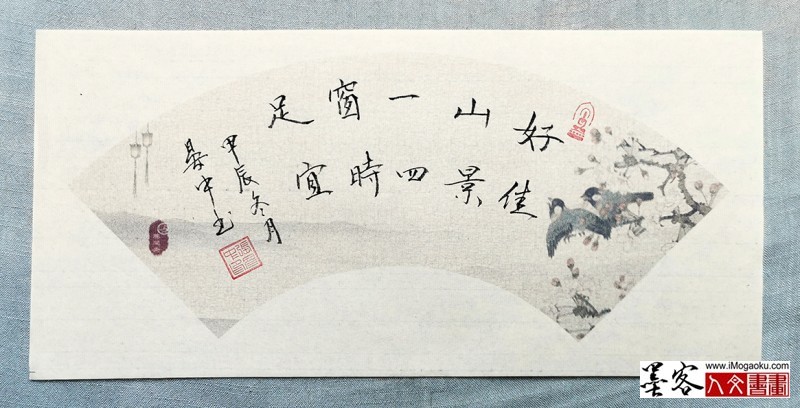 好山一窗足
佳景四時宜
甲辰冬月
中书
墨客
www.iMogaoku.com
人文書畫